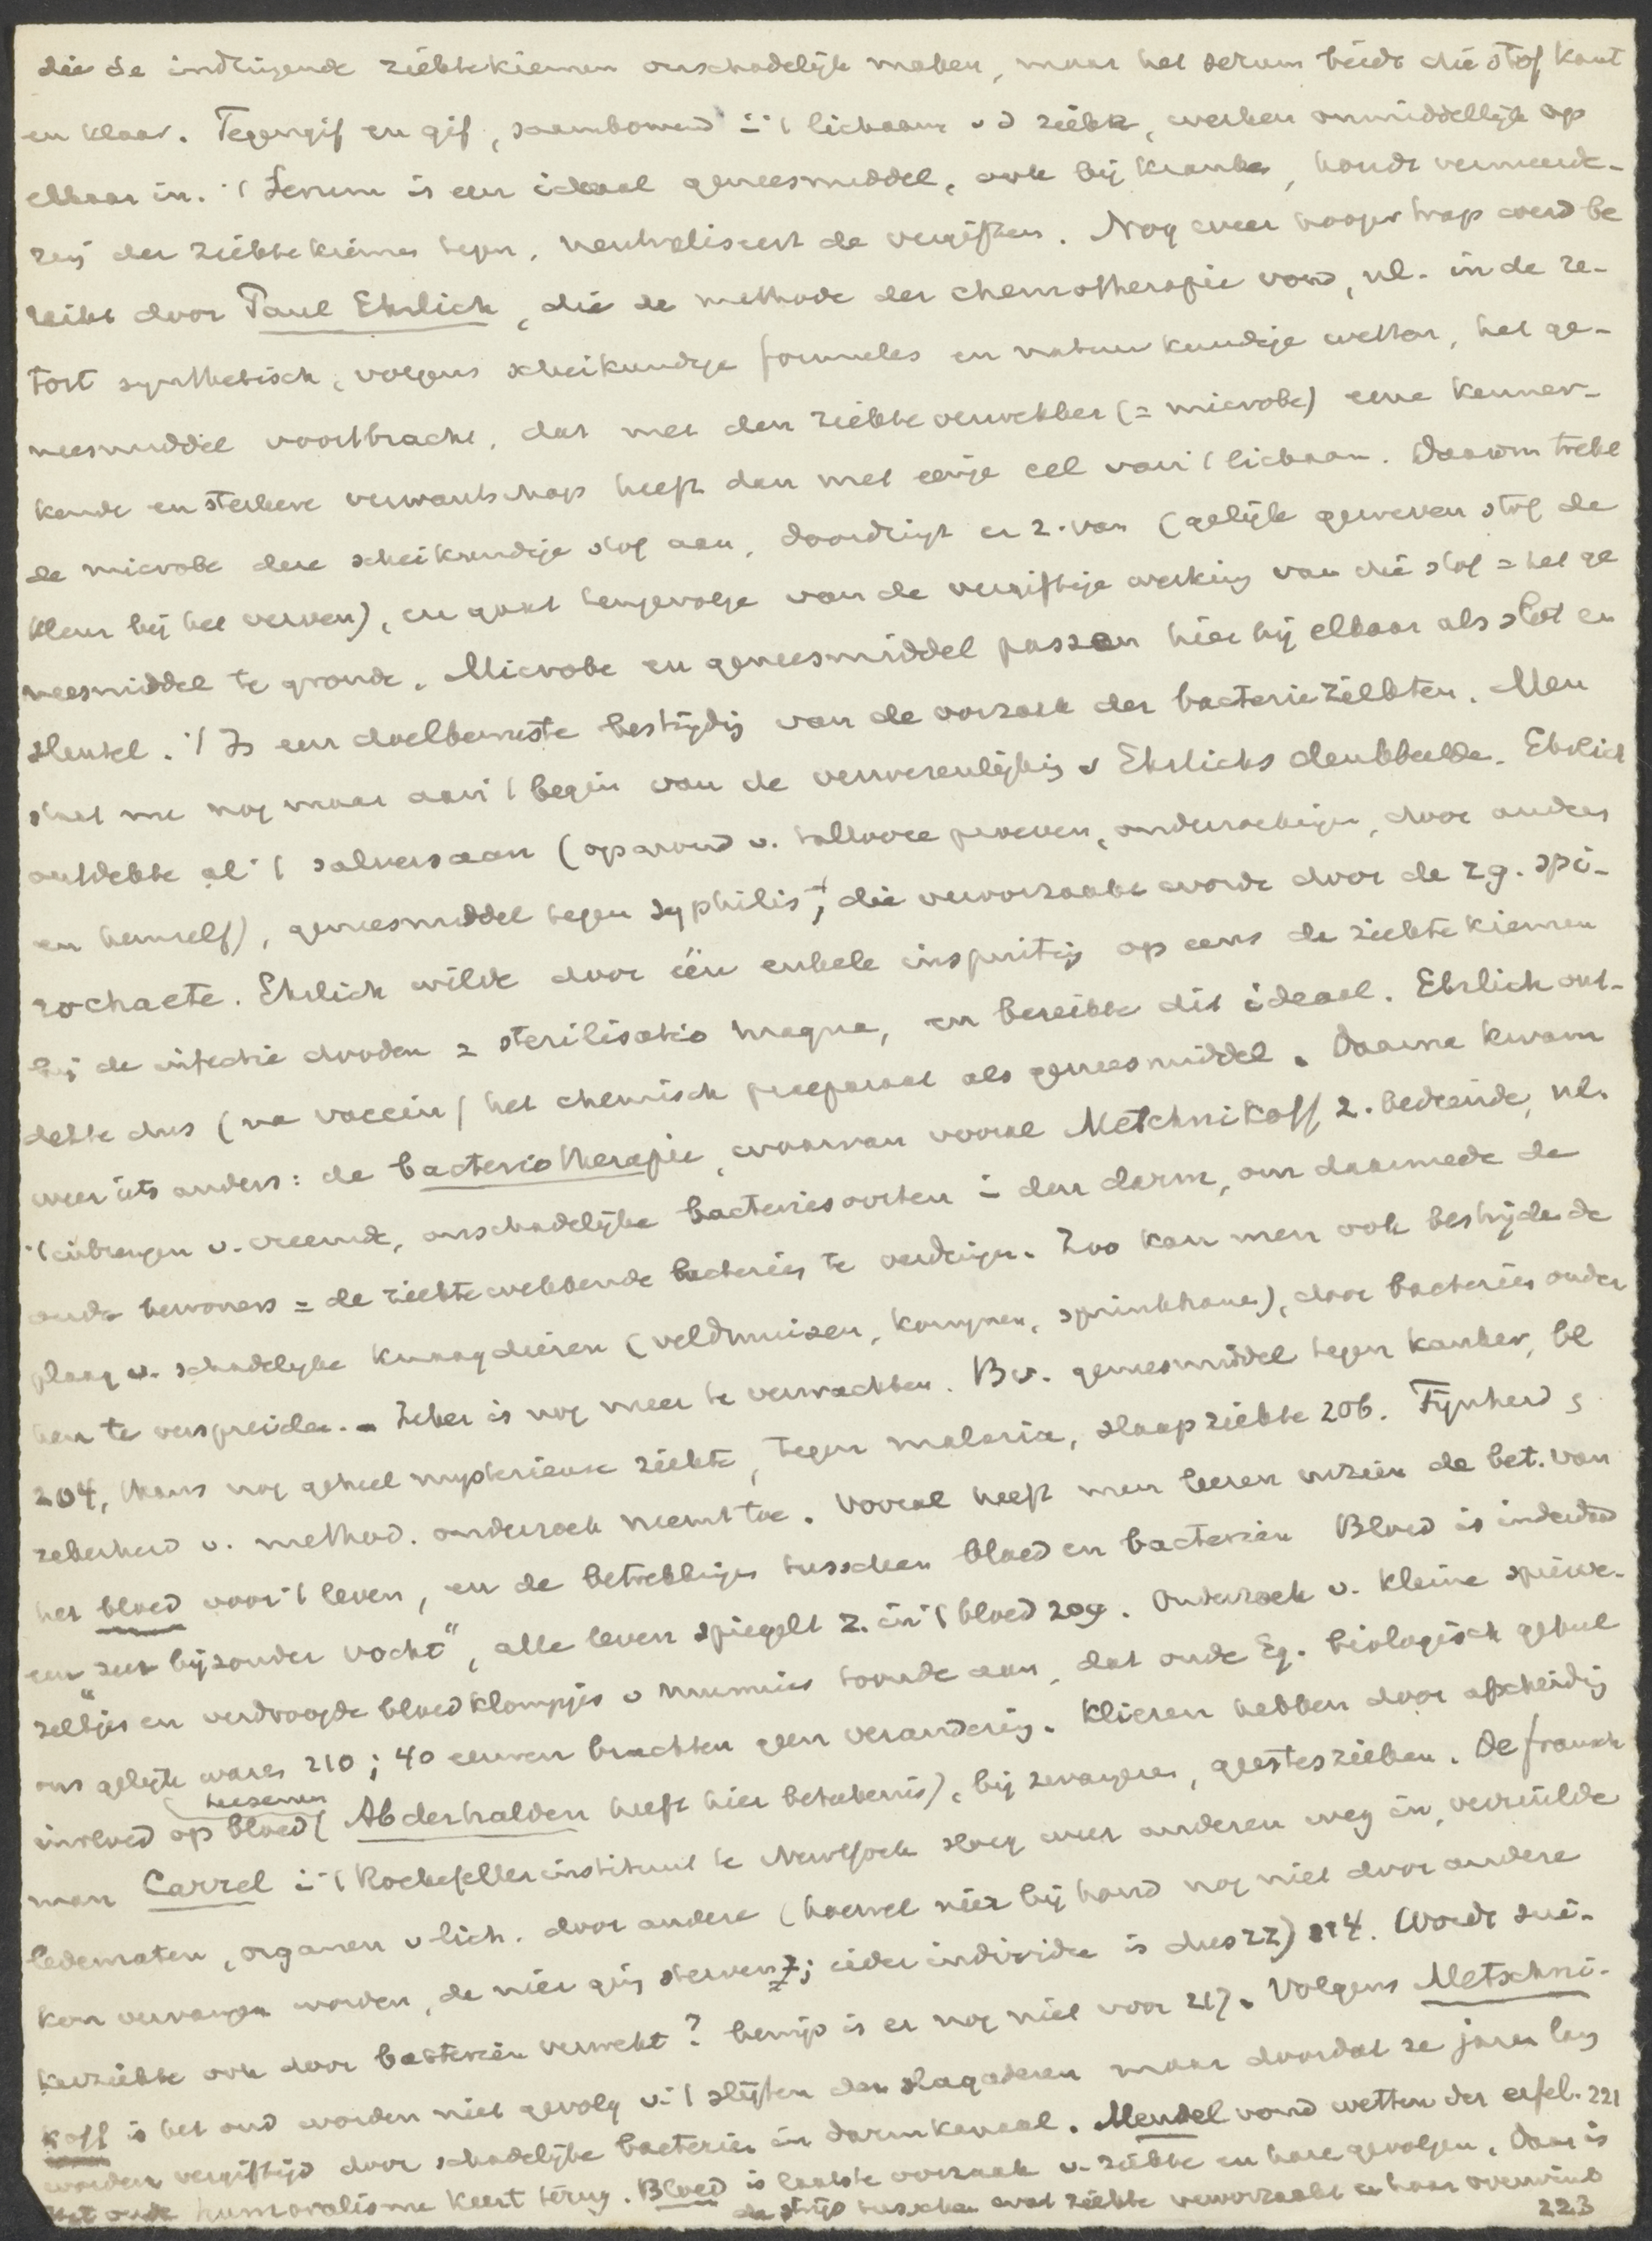 die de indringende ziektekiemen onschadelijk maken, maar het serum biedt die stof kant
en klaar. Tegengif en gif, saambouwend i 't lichaam v d zieke, werken onmiddellijk op
elkaar in. 't Serum is een ideaal geneesmiddel, ook bij kranken, houdt vermeerde-
ring der ziektekiemen tegen, neutraliseert de vergiften. Nog weer hooger trap werd be
reikt door Paul Ehrlich, die de methode der chemotherapie vond, nl. in de re-
tort synthetisch, volgens scheikundige formules en natuurkundige wetten, het ge-
neesmiddel voortbracht, dat met den ziekteverwekker (= microbe) eene kenmer-
kende en sterkere verwantschap heeft dan met eenige cel van 't lichaam. Daarom trekt
de microbe deze scheikundige stof aan, doordringt er z. van (gelijk geweven stof de
kleur bij het verven), en gaat tengevolge van de vergiftige werking van die stof = het ge
neesmiddel te gronde. Microbe en geneesmiddel passen hier bij elkaar als slot en
sleutel. 't Is een doelbewuste bestrijdig van de oorzaak der bacterieziekten. Men
staat nu nog maar aan 't begin van de verwerenlijkig v Ehrlichs denkbeelde. Ehrlich
ontdekte al 't salversaan (op grond v. tallooze proeven, onderzoekingn, door anders
en hemself), geneesmiddel tegen syphilis, die veroorzaakt wordt door de zg. spi-
rochaete. Ehrlich wilde door één enkele inspuitig op eens de ziektekiemen
bij de infectie dooden = sterilisatio magna, en bereikte dit ideaal. Ehrlich ont-
dekte dus (na vaccin) het chemisch praeparaat als geneesmiddel. Daarna kwam
weer iets anders: de bacteriotherapie, waarvan vooral Metchnikoff z. bediende, nl.
't inbrengen v. vreemde, onschadelijke bacteriesoorten i den darm, om daarmede de
oude bewoners = de ziekteverwekkende bacteries te verdringn. Zoo kan men ook bestrijde de
plaag v. schadelijke knaagdieren (veldmuizen, konijnen, sprinkhanen), door bacteries onder
hen te verspreiden. - Zeker is nog meer te verwachten. Bv. geneesmiddel tegen kanker, bl
204, thans nog geheel mysterieuse ziekte, tegen malaria, slaapziekte 206. Fijnheid &
zekerheid v. method. onderzoek neemt toe. Vooral heeft men leeren inzien de bet. van
het bloed voor 't leven, en de betrekkingn tusschen bloed en bacteriën Bloed is inderdaad
een „zeer bijzonder vocht“, alle leven spiegelt z. in 't bloed 209. Onderzoek v. kleine spierve-
zeltjes en verdroogde bloedklompjes v mumies toonde aan, dat oude Eg. biologisch geheel
ons gelijk waren 210; 40 eeuwen brachten geen veranderig. Klieren hebben door afscheidig
invloed op bloed (Abderhalden heeft hier beteekenis), bij zwangeren, geesteszieken. De fransch
man Carrel i 't Rockefellerinstituut te NewYork sloeg weer anderen weg in, verruilde
ledematen, organen v lich. door andere (hoewel nier bij hond nog niet door andere
kan vervangen worden, de nier ging sterven; ieder individu is dus zz) 214. Wordt sui-
kerziekte ook door bacteriën verwekt? bewijs is er nog niet voor 217. Volgens Metschni-
koff is het oud worden niet gevolg v. 't slijten der slagaderen maar doordat ze jaren lang
worden vergiftigd door schadelijke bacteriën in darmkanaal. Mendel vond wetten der erfel. 221
Het oude humoralisme keert terug. Bloed is laatste oorzaak v. ziekte en hare gevolgen. Daar is
de strijd tusschen wat ziekte veroorzaakt en haar overwint
223